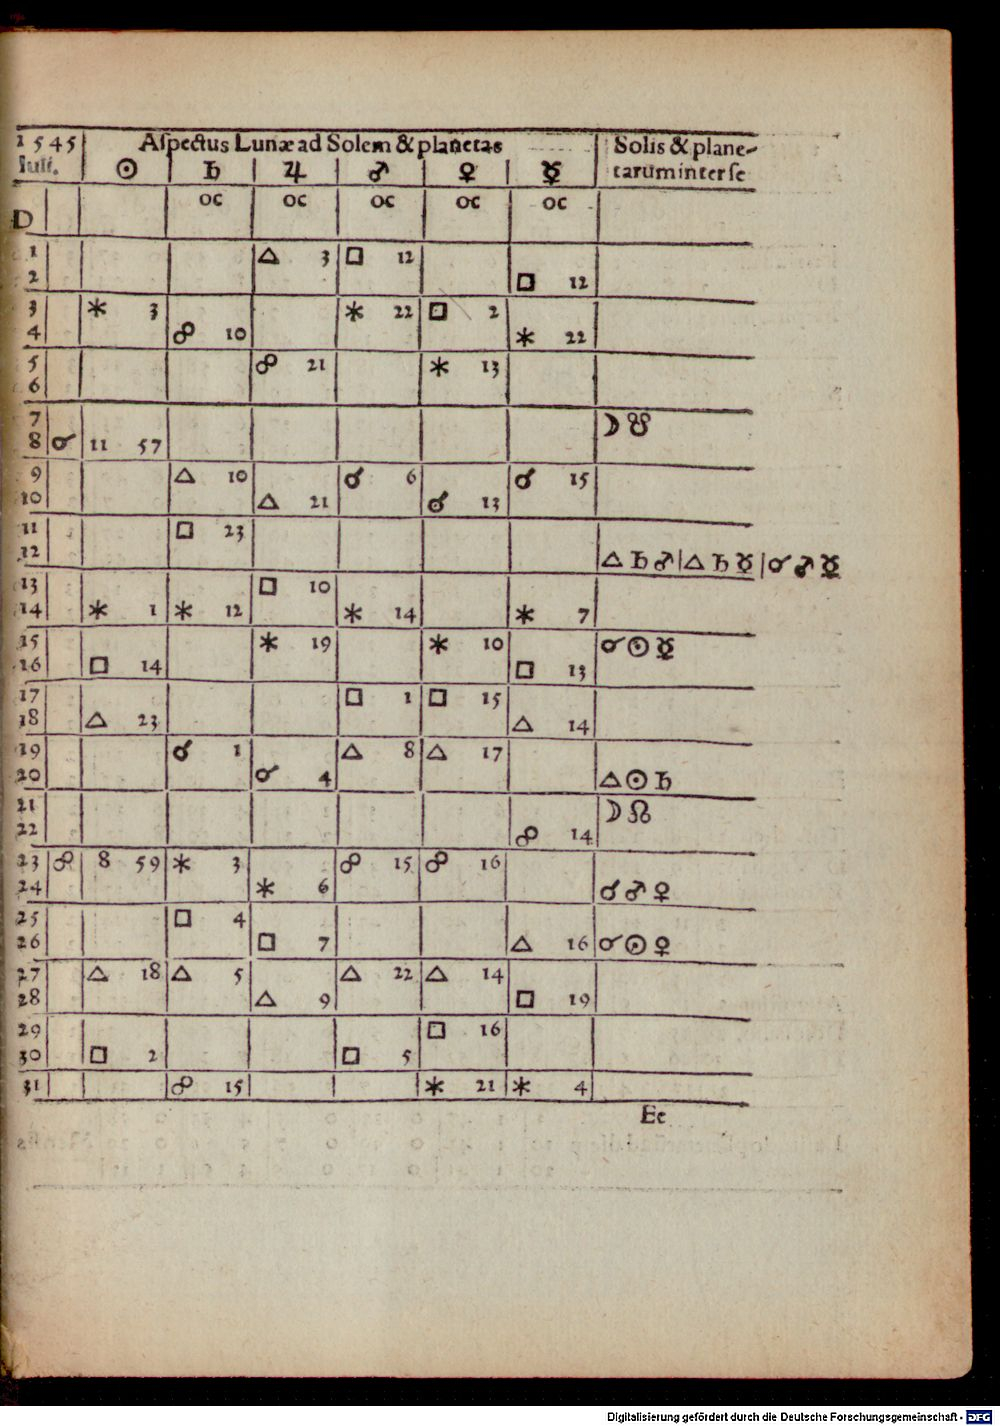 1545 Aſpectus Lunæ ad Solem & planetas Solis & plane-
Iulij. ☉ ♄ ♃ ♂ ♀ ☿ tarum inter ſe
D oc oc oc oc oc
1 △ 3 □ 12
2 □ 12
3 ⚹ 3 ⚹ 22 □ 2
4 ☍ 10 ⚹ 22
5 ☍ 21 ⚹ 13
6
7 ☽ ☋
8 ☌ 11 57
9 △ 10 ☌ 6 ☌ 15
10 △ 21 ☌ 13
11 □ 23
12 △ ♄ ♂ | △ ♄ ☿ | ☌ ♂ ☿
13 □ 10
14 ⚹ 1 ⚹ 12 ⚹ 14 ⚹ 7
15 ⚹ 19 ⚹ 10 ☌ ☉ ☿
16 □ 14 □ 13
17 □ 1 □ 15
18 △ 23 △ 14
19 ☌ 1 △ 8 △ 17
20 ☌ 4 △ ☉ ♄
21 ☽ ☊
22 ☍ 14
23 ☍ 8 59 ⚹ 3 ☍ 15 ☍ 16
24 ⚹ 6 ☌ ♂ ♀
25 □ 4
26 □ 7 △ 16 ☌ ☉ ♀
27 △ 18 △ 5 △ 22 △ 14
28 △ 9 □ 19
29 □ 16
30 □ 2 □ 5
31 ☍ 15 ⚹ 21 ⚹ 4
Ee
Digitalisierung gefördert durch die Deutsche Forschungsgemeinschaft - DFG